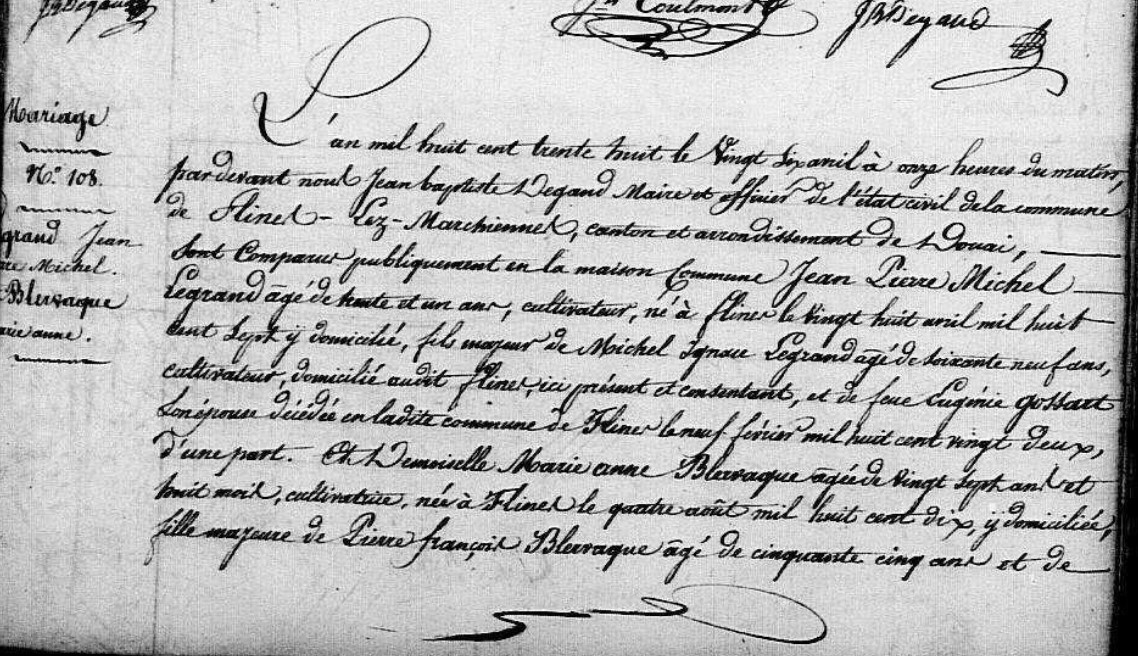 JBDegand
Coulmont
JBDegand
Mariage
N.° 108.
grand Jean
re Michel.
Blervaque
arie anne.
L'an mil huit cent trente huit le Vingt Six avril à onze heures du matin,
pardevant nous Jean baptiste Degand Maire et officier de l'état civil de la commune
de Flines-Lez-Marchiennes, canton et arrondissement de Douai,
Sont Comparus publiquement en la maison Commune Jean Pierre Michel
Legrand âgé de trente et un ans, cultivateur, né à flines le Vingt huit avril mil huit
cent Sept y domicilié, fils majeur de Michel Ignace Legrand âgé de soixante neuf ans,
cultivateur, domicilié audit flines, ici présent et consentant, et de feue Eugénie Gossart
Son épouse décédée en ladite commune de Flines le neuf février mil huit cent vingt deux,
d'une part. Et Demoiselle Marie anne Blervaque âgée de Vingt Sept ans et
huit mois, cultivatrice, née à Flines le quatre août mil huit cent dix, y domiciliée,
fille majeure de Pierre françois Blervaque âgé de cinquante cinq ans et de